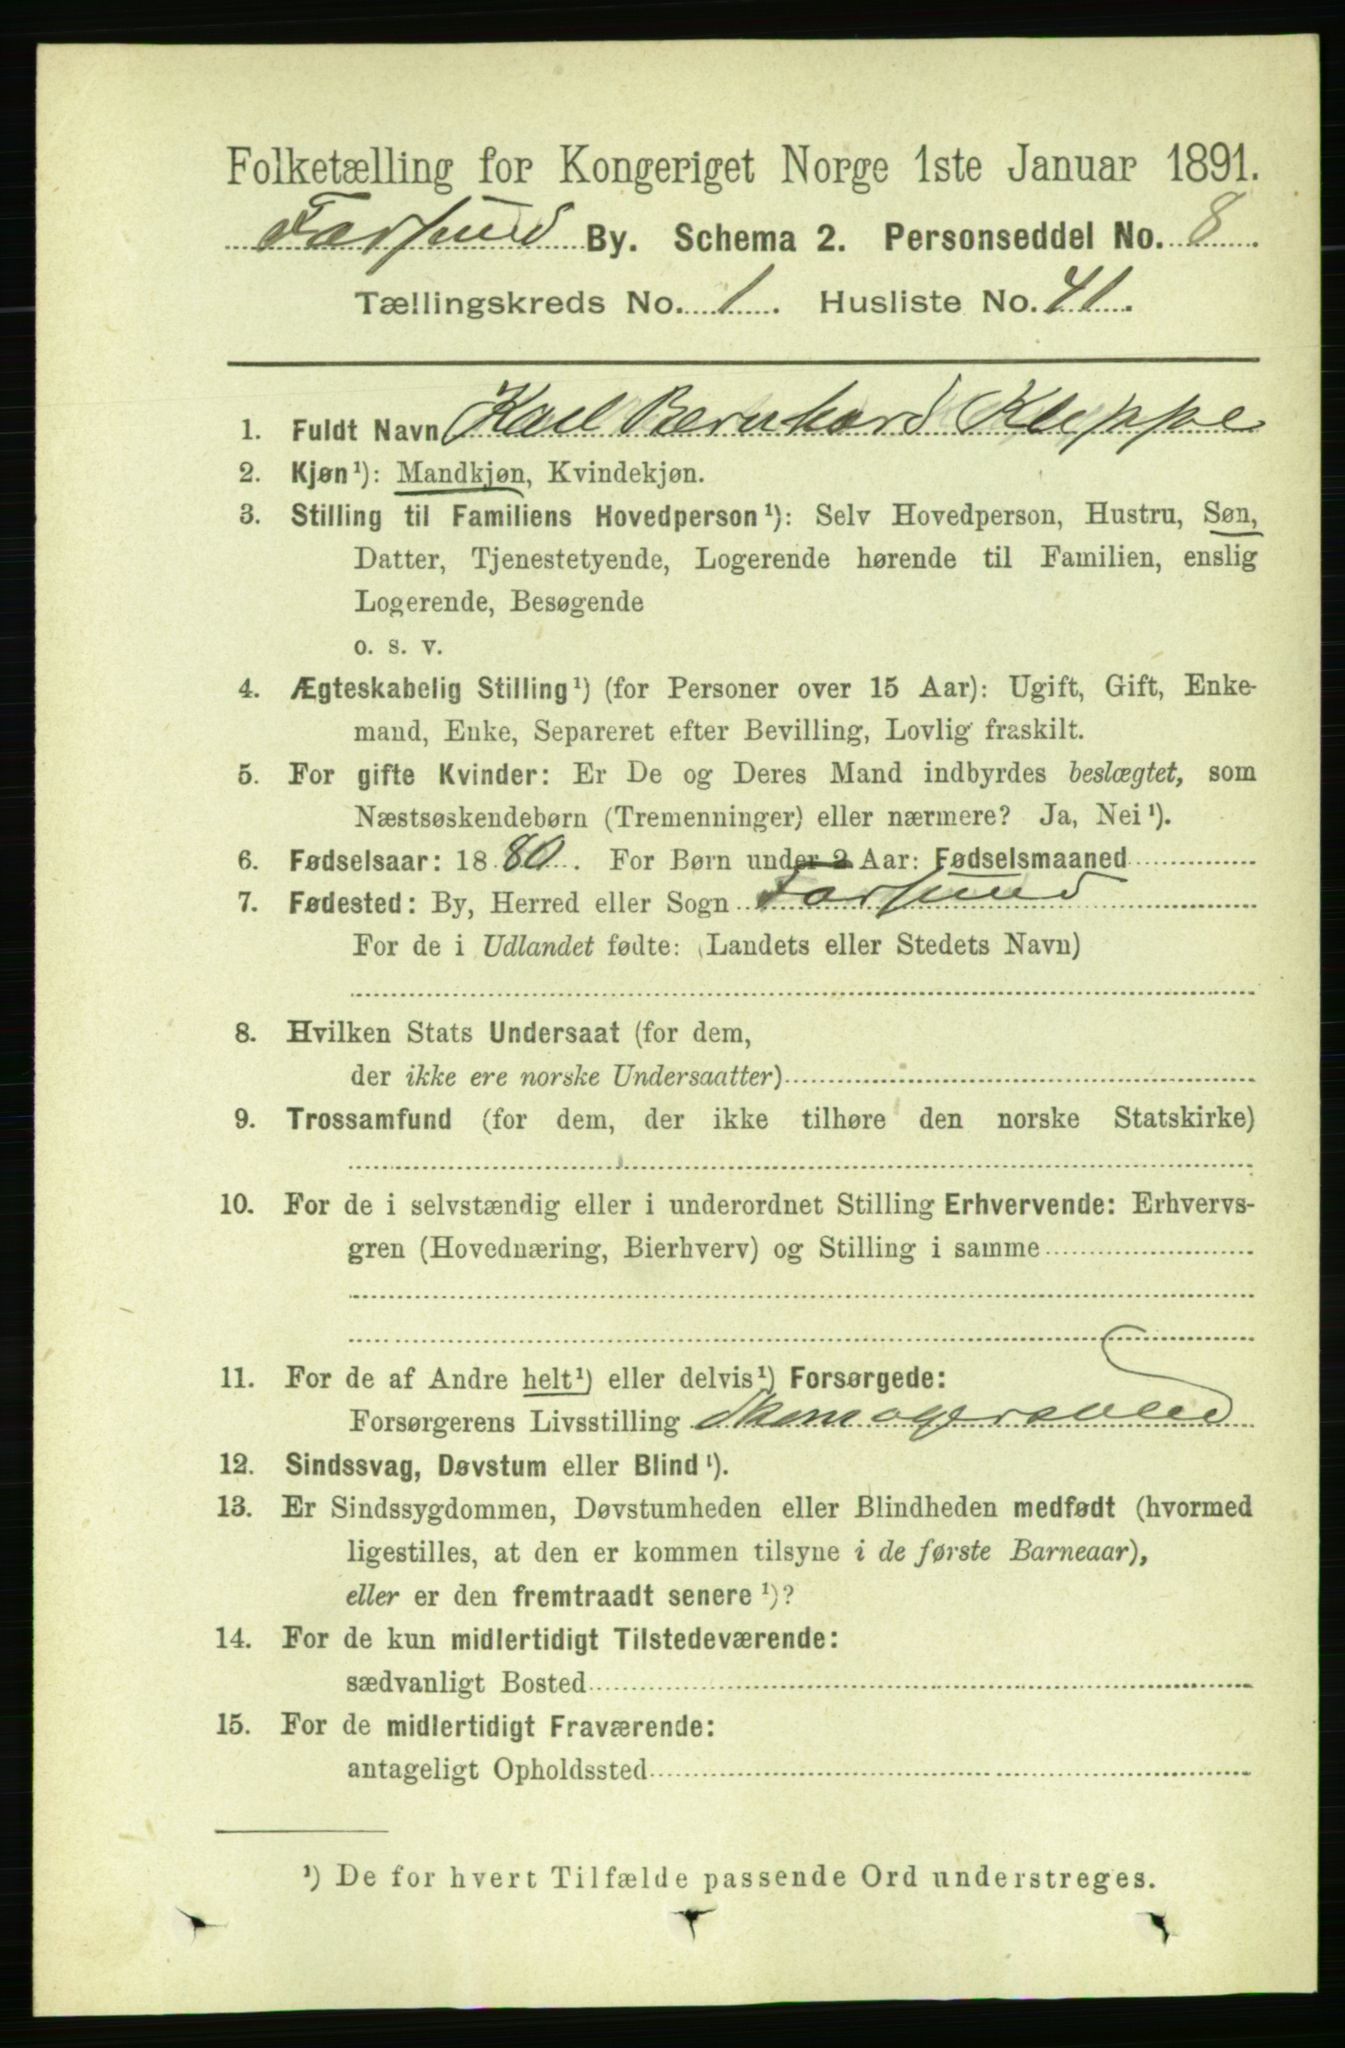 Folketælling for Kongeriget Norge 1ste Januar 1891.
Farsund By. Schema 2. Personseddel No. 8.
Tællingskreds No. 1. Husliste No. 41.
1. Fuldt Navn Karl Bernhard Kleppe
2. Kjøn¹): Mandkjøn, Kvindekjøn.
3. Stilling til Familiens Hovedperson¹): Selv Hovedperson, Hustru, Søn,
Datter, Tjenestetyende, Logerende hørende til Familien, enslig
Logerende, Besøgende
o. s. v.
4. Ægteskabelig Stilling¹) (for Personer over 15 Aar): Ugift, Gift, Enke-
mand, Enke, Separeret efter Bevilling, Lovlig fraskilt.
5. For gifte Kvinder: Er De og Deres Mand indbyrdes beslægtet, som
Næstsøskendebørn (Tremenninger) eller nærmere? Ja, Nei¹).
6. Fødselsaar: 1880. For Børn under 2 Aar: Fødselsmaaned
7. Fødested: By, Herred eller Sogn Farsund
For de i Udlandet fødte: (Landets eller Stedets Navn)
8. Hvilken Stats Undersaat (for dem,
der ikke ere norske Undersaatter)
9. Trossamfund (for dem, der ikke tilhøre den norske Statskirke)
10. For de i selvstændig eller i underordnet Stilling Erhvervende: Erhvervs-
gren (Hovednæring, Bierhverv) og Stilling i samme
11. For de af Andre helt¹) eller delvis¹) Forsørgede:
Forsørgerens Livsstilling Skomagersvend
12. Sindssvag, Døvstum eller Blind¹).
13. Er Sindssygdommen, Døvstumheden eller Blindheden medfødt (hvormed
ligestilles, at den er kommen tilsyne i de første Barneaar),
eller er den fremtraadt senere¹)?
14. For de kun midlertidigt Tilstedeværende:
sædvanligt Bosted
15. For de midlertidigt Fraværende:
antageligt Opholdssted
¹) De for hvert Tilfælde passende Ord understreges.